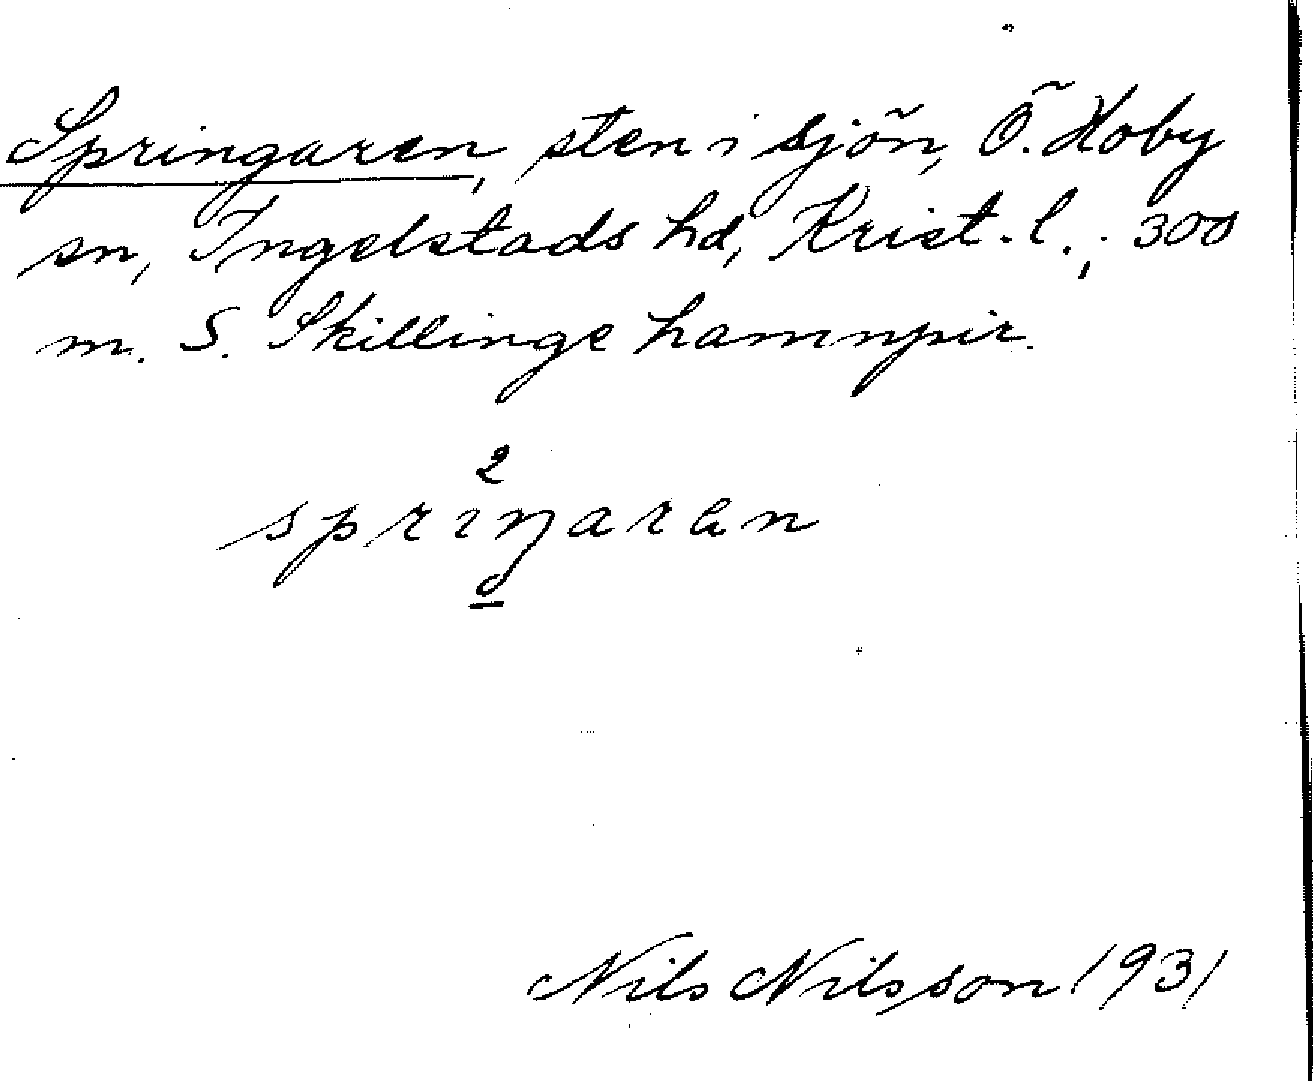 Springaren, sten i sjön, Ö. Hoby
sn, Ingelstads hd, Krist. l., 300
m. S. Skillinge hamnpir.
2
spriŋaran
Nils Nilsson 1931